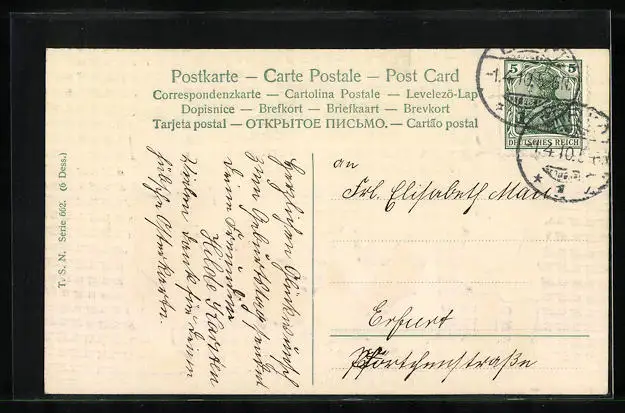 Postkarte – Carte Postale – Post Card
Correspondenzkarte – Cartolina Postale – Levelező-Lap
Dopisnice – Brefkort – Briefkaart – Brevkort
Tarjeta postal – ОТКРЫТОЕ ПИСЬМО. – Cartão postal
5 5
DEUTSCHES REICH
1.4.10.5
1.4.10.5
1
T. S. N. Série 662. (6 Dess.)
Herzlichen Glückwunsch
zum Geburtstage sendet
Deine Freundin
Hilde Karsten
Vielen Dank für Deine
hübsche Osterkarte.
an
Frl. Elisabeth
Erfurt
Pförtchenstraße